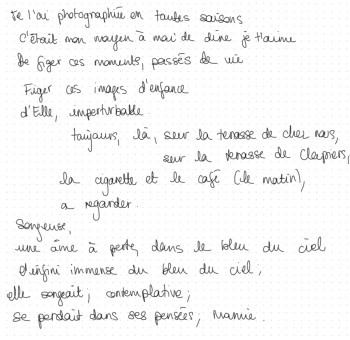 Je l'ai photographiée en toutes saisons
C'était mon moyen à moi de dire je t'aime
De figer ces moments, passés de vie
Figer ces images d'enfance
d'Elle, imperturbable
toujours, là, sur la terrasse de chez nous,
sur la terrasse de Clapiers,
la cigarette et le café (le matin),
a regarder.
Songeuse,
une âme à perte, dans le bleu du ciel
d'infini immense du bleu du ciel,
elle songeait; contemplative;
se perdait dans ses pensées, Mamie.